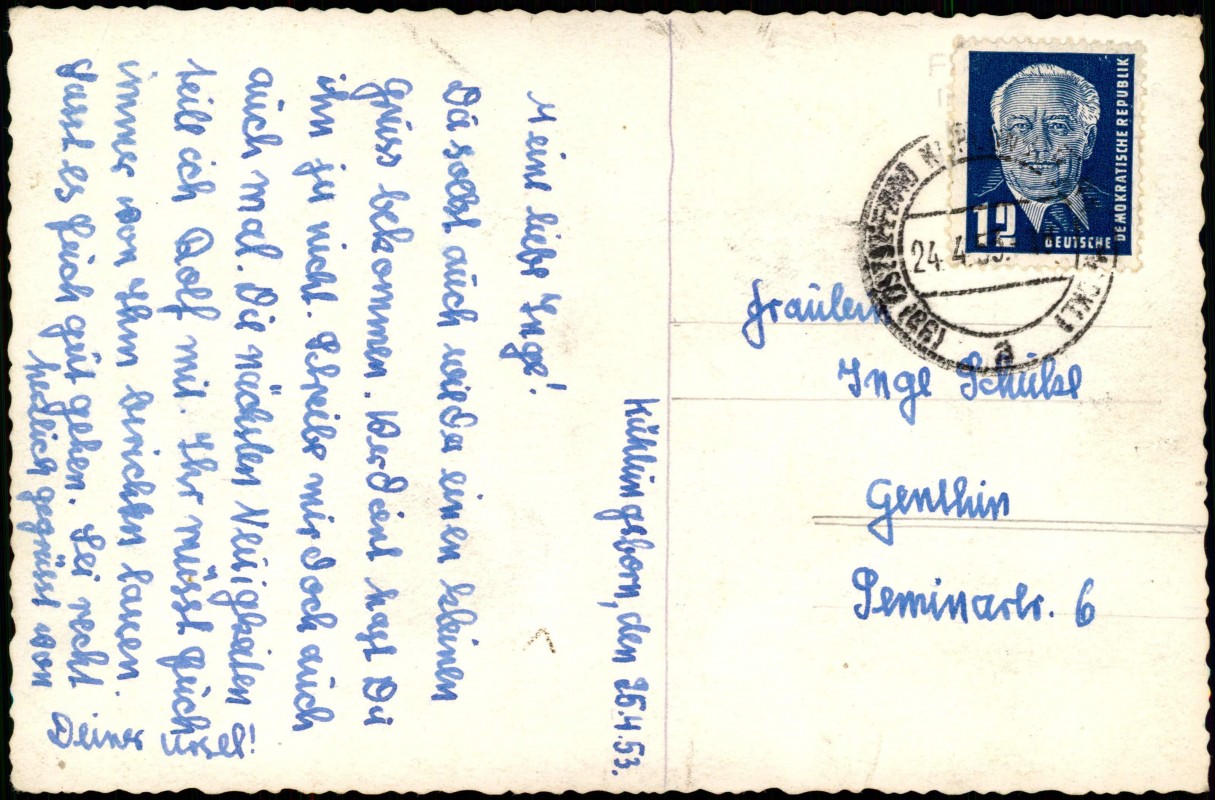 Kühlungsborn, den 26.4.53.
Meine liebe Inge!
Du sollst auch wieder einen kleinen
Gruss bekommen. Verdient hast Du
ihn ja nicht. Schreibe mir doch auch
auch mal. Die nächsten Neuigkeiten
teilt ich Rolf mit. Ihr müsst Euch
immer von Ihm berichten lassen.
Lasst es Euch gut gehen. Sei recht
herzlich gegrüsst von
Deiner Ursel!
12
DEUTSCHE
DEMOKRATISCHE REPUBLIK
24.4.53.
a
Fräulein
Inge Schulse
Genthin
Seminarstr. 6